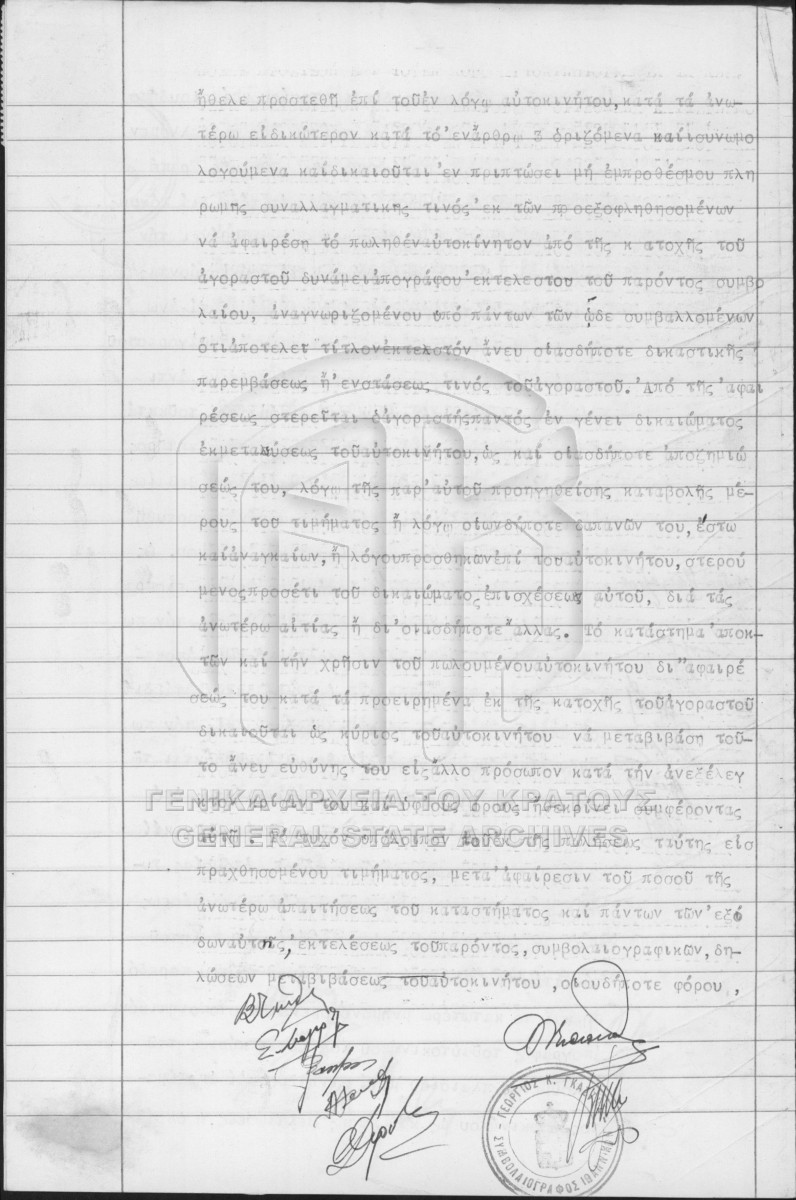 ἤθελε προστεθῆ ἐπί τοῦἐν λόγῳ αὐτοκινήτου,κατά τά ἀνω-
τέρω εἰδικώτερον κατά τό'ἐνἄρθρῳ 3 ὁριζόμενα καίισυνωμο
λογούμενα καίδικαιοῦται'ἐν πριπτώσει μή ἐμπροθέσμου πλη
ρωμῆς συναλλαγματικῆς τινός'ἐκ τῶν προεξοφληθησομένων
νά ἀφαιρέση τό πωληθέναὐτοκίνητον ἀπό τῆς κ ατοχῆς τοῦ
ἀγοραστοῦ δυνάμειἀπογράφου'ἐκτελεστοῦ τοῦ παρόντος συμβο
λαίου, ἀναγνωριζομένου ὑπό πάντων τῶν ᾧδε συμβαλλομένων
ὅτιἀποτελεῖ τίτλονἐκτελστόν ἄνευ οἱασδήποτε δικαστικῆς
παρεμβάσεως ἤ'ἐνστάσεως τινός τοῦἀγοραστοῦ.'Από τῆς'ἀφαι
ρέσεως στερεῖται ὁἀγοραστήςπαντός ἐν γένει δικαιώματος
ἐκμεταλύσεως τοῦαὐτοκινήτου,ὡς καί οἱασδήποτε ἀποζημιώ
σεώς του, λόγῳ τῆς παρ'αὐτοῦ προηγηθείσης καταβολῆς μέ-
ρους τοῦ τιμήματος ἤ λόγῳ οἱωνδήποτε δαπανῶν του, ἔστω
καίἀναγκαίων,ἤ λόγουπροσθηκῶνἐπί τοῦαὐτοκινήτου,στερού
μενοςπροσέτι τοῦ δικαιώματος ἐπισχέσεως αὐτοῦ, διά τάς
ἀνωτέρω αἰτίας ἤ δι'οἱασδήποτε ἄλλας. Τό κατάστημα'ἀποκ-
τῶν καί τήν χρῆσιν τοῦ πωλουμένουαὐτοκινήτου δι'"ἀφαιρέ
σεώς του κατά τά προειρημένα ἐκ τῆς κατοχῆς τοῦἀγοραστοῦ
δικαιοῦται ὡς κύριος τοῦαὐτοκινήτου νά μεταβιβάση τοῦ-
το ἄνευ εὐθύνης του εἰςἄλλο πρόσωπον κατά τήν ἀνεξέλεγ
κτον κρίσιν του καί ὑφ'οὕς ὅρους ἤθεκρίνει συμφέροντας
ΓΕΝΙΚΑ ΑΡΧΕΙΑ ΤΟΥ ΚΡΑΤΟΥΣ
GENERAL STATE ARCHIVES
αὐτῷ. Τό τυχόν ὑπόλοιπον τοῦἐκ τῆς πωλήσεως ταύτης εἰσ
πραχθησομένου τιμήματος, μετά'ἀφαίρεσιν τοῦ ποσοῦ τῆς
ἀνωτέρω ἀπαιτήσεως τοῦ καταστήματος καί πάντων τῶν'ἐξό
δωναὐτῆς,'ἐκτελέσεως τοῦπαρόντος,συμβολαιογραφικῶν,δη-
λώσεων μεταβιβάσεως τοῦαὐτοκινήτου ,οἱουδήποτε φόρου,
ΓΕΩΡΓΙΟΣ Κ. ΓΚΑ
ΣΥΜΒΟΛΑΙΟΓΡΑΦΟΣ ΙΩΑΝΝΙΝ